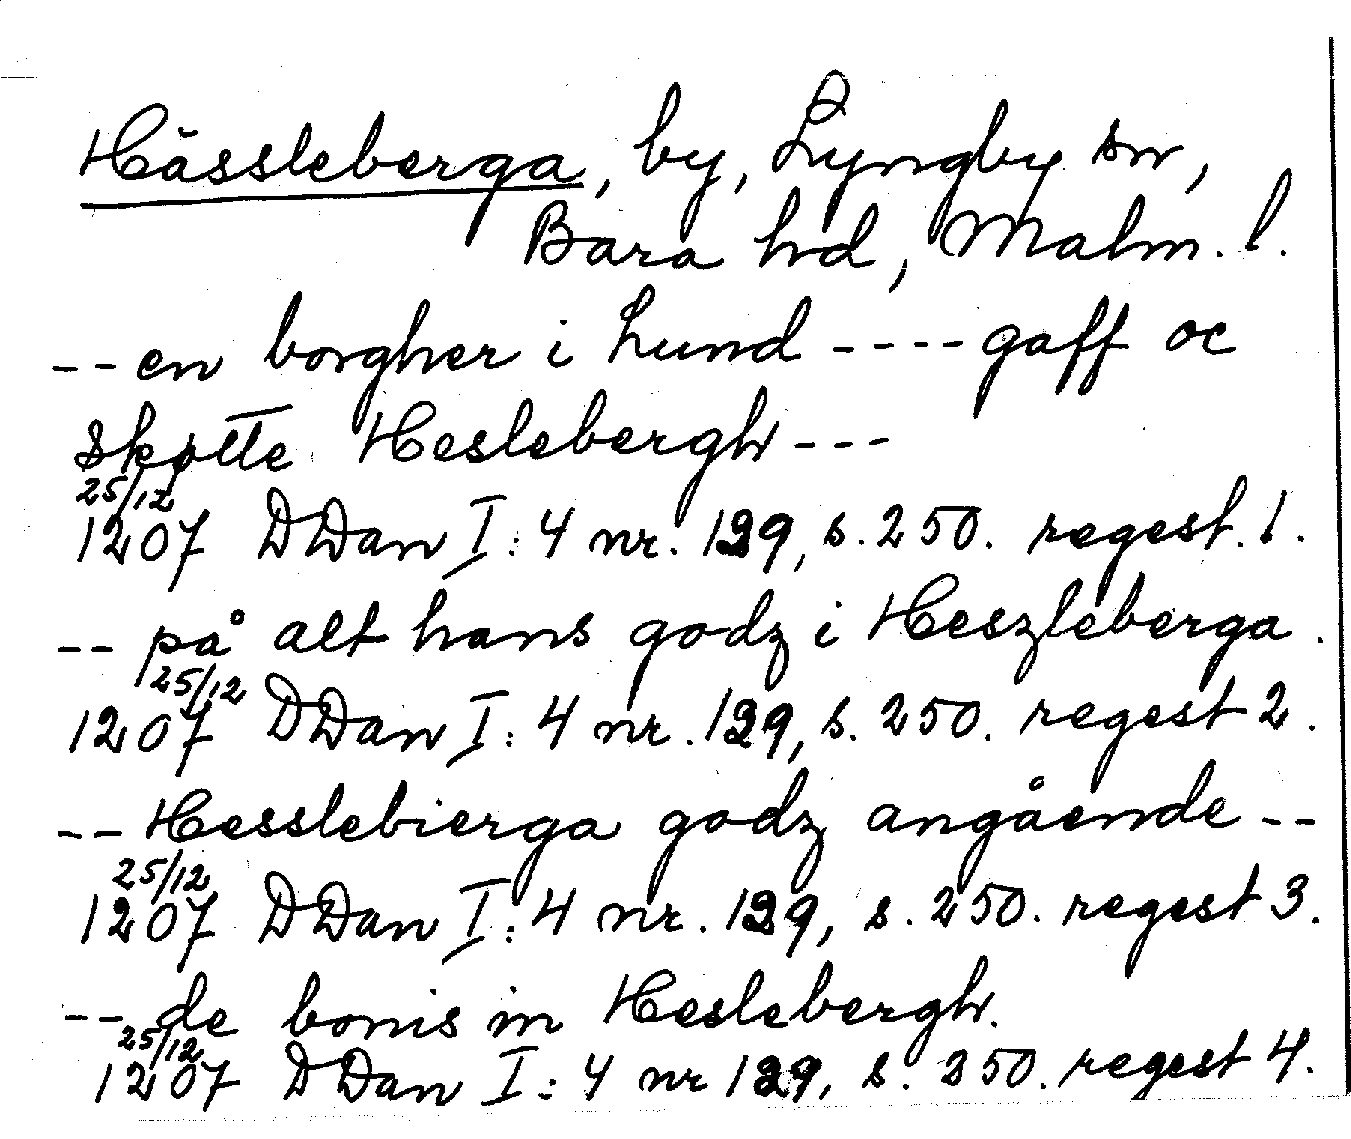 Hässleberga, by, Lyngby sn,
Bara hd, Malm. l.
-- en borgher i Lund ---- gaff oc
skøtte Heslebergh ---
25/12
1207 DDan I:4 nr. 129, s. 250. regest. 1.
-- på alt hans godz i Heszleberga.
25/12
1207 DDan I:4 nr. 129, s. 250. regest 2.
-- Hesslebierga godz angående --
25/12
1207 DDan I:4 nr. 129, s. 250. regest 3.
-- de bonis in Heslebergh.
25/12
1207 DDan I:4 nr 129, s. 250. regest 4.